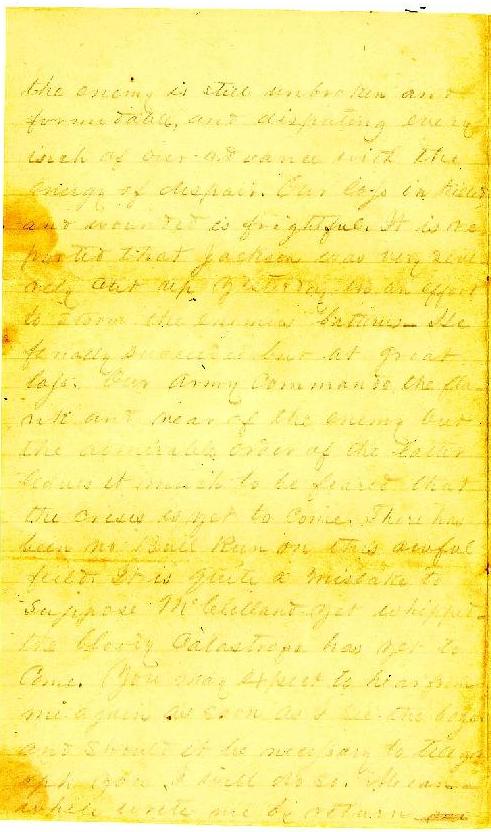 the enemy is still unbroken and
formidable, and disputing every
inch of our advance with the
energy of despair. Our loss in killed
and wounded is frightful. It is re
ported that Jackson was very seve
rely cut up yesterday in an effort
to storm the enemies batteries. He
finally succeeded but at great
loss. Our army commands the fla-
nk and rear of the enemy but
the admirable order of the latter
leaves it much to be feared that
the crisis is yet to come. There has
been no Bull Run on this awful
field. It is quite a mistake to
suppose McClelland yet whipped
the bloody catastrope has yet to
come. You may expect to hear from
me again as soon as I see the boys
and should it be necessary to telegr
aph you I will do so. Mean-
while write me by return